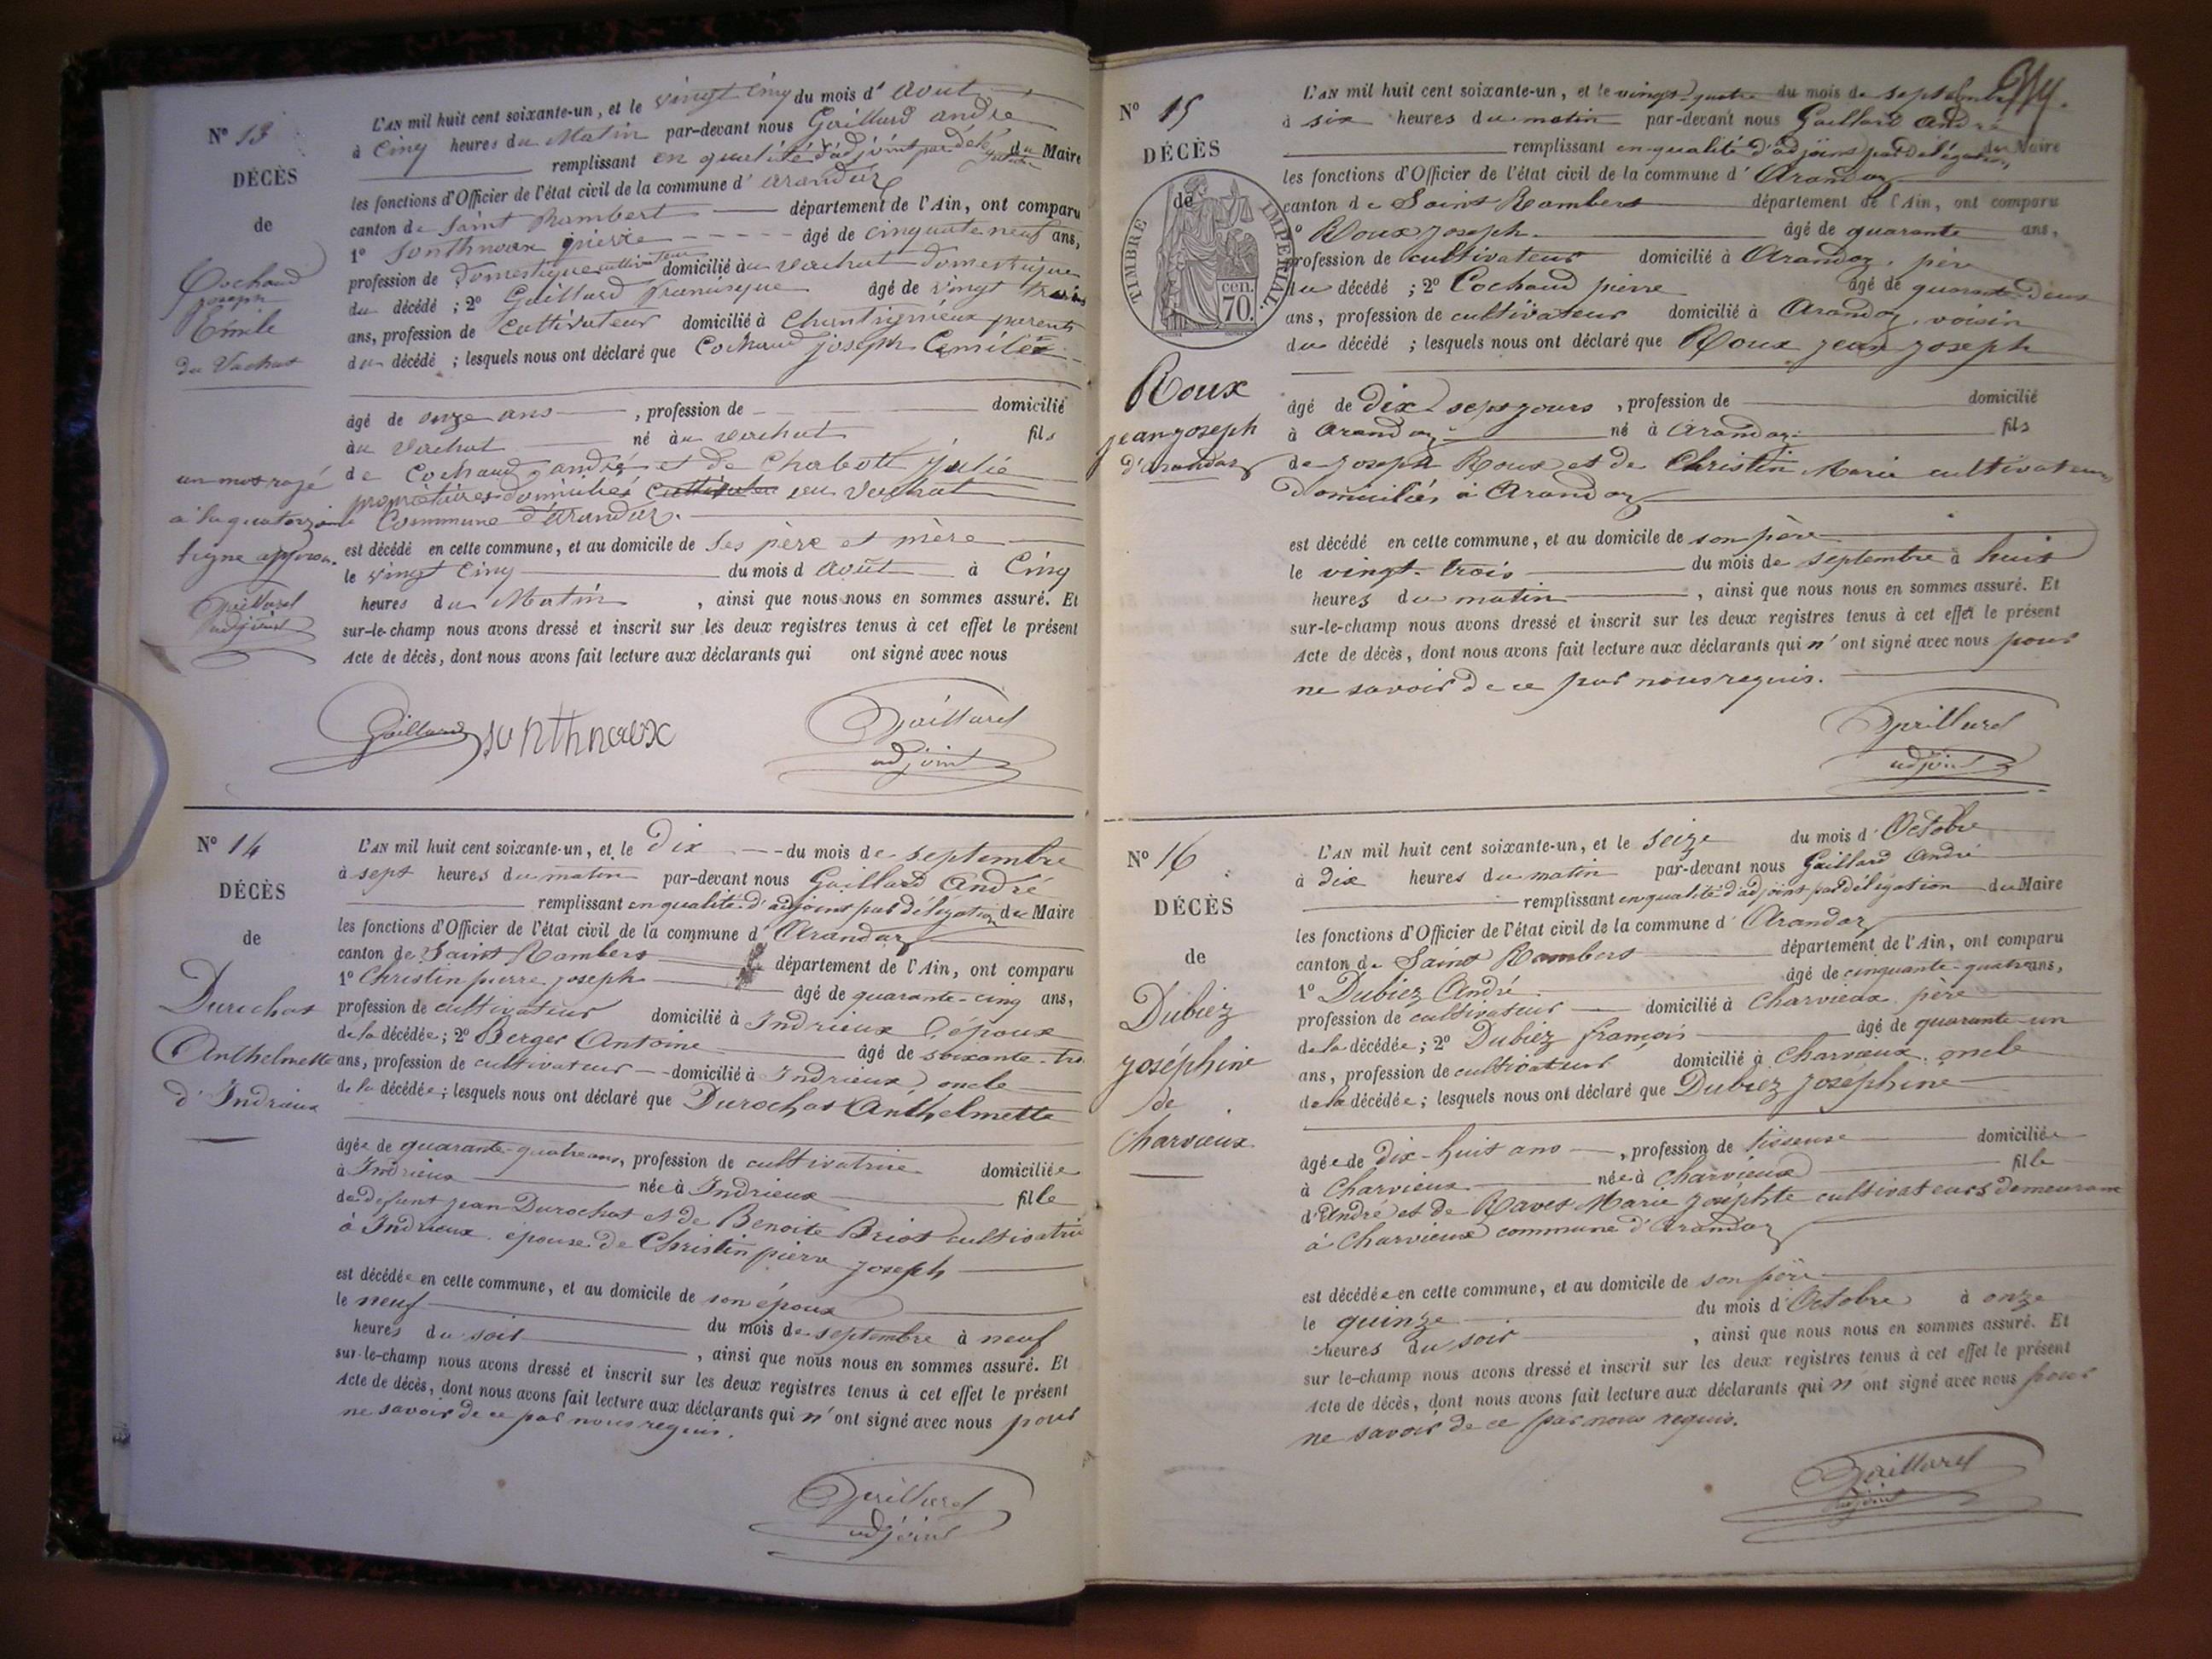 N° 13
DÉCÈS
de
Cochaud
joseph
Emile
du Vachat
un mot rayé
à la quatorzième
ligne approu.
Gaillard
adjoint
L'AN mil huit cent soixante-un, et le vingt cinq du mois d'Août
à Cinq heures du Matin par-devant nous Gaillard andré
remplissant en qualité d'adjoint par délégation du Maire
les fonctions d'Officier de l'état civil de la commune d'arandas
canton de Saint Rambert département de l'Ain, ont comparu
1° Sonthnoux pierre âgé de cinquante neuf ans,
profession de Domestique cultivateur domicilié au vachat domestique
du décédé ; 2° Gaillard âgé de vingt trois
ans, profession de Cultivateur domicilié à parents
du décédé ; lesquels nous ont déclaré que Cochaud joseph Emile
âgé de onze ans , profession de domicilié
au vachat né au vachat fils
de Cochaud andré et de Chabott julie
propriétaires domiciliés cultivateur au Vachat
Commune d'arandas.
est décédé en cette commune, et au domicile de ses père et mère
le vingt Cinq du mois d Août à Cinq
heures du Matin , ainsi que nous nous en sommes assuré. Et
sur-le-champ nous avons dressé et inscrit sur les deux registres tenus à cet effet le présent
Acte de décès, dont nous avons fait lecture aux déclarants qui ont signé avec nous
Gaillard sonthnoux Gaillard
adjoint
N° 14
DÉCÈS
de
Durochat
Anthelmette
d'Indrieux
L'AN mil huit cent soixante-un, et le Dix du mois de septembre
à sept heures du matin par-devant nous Gaillard André
remplissant en qualité d'adjoint par délégation du Maire
les fonctions d'Officier de l'état civil de la commune d'Arandas
canton de Saint Rambert département de l'Ain, ont comparu
1° Christin pierre joseph âgé de quarante-cinq ans,
profession de cultivateur domicilié à Indrieux l'époux
de la décédée ; 2° Berger Antoine âgé de soixante-tro
ans, profession de cultivateur domicilié à Indrieux oncle
de la décédée ; lesquels nous ont déclaré que Durochat Anthelmette
âgée de quarante-quatre ans, profession de cultivatrice domiciliée
à Indrieux née à Indrieux fille
de défunt jean Durochat et de Benoite Briot cultivatrice
à Indrieux. épouse de Christin pierre joseph
est décédée en cette commune, et au domicile de son époux
le neuf du mois de septembre à neuf
heures du soir , ainsi que nous nous en sommes assuré. Et
sur-le-champ nous avons dressé et inscrit sur les deux registres tenus à cet effet le présent
Acte de décès, dont nous avons fait lecture aux déclarants qui n'ont signé avec nous pour
ne savoir de ce par nous requis.
Gaillard
adjoint
N° 15
DÉCÈS
de
TIMBRE IMPÉRIAL
70. cen.
Roux
jean joseph
d'Arandas
L'AN mil huit cent soixante-un, et le vingt-quatre du mois de septembre
à six heures du matin par-devant nous Gaillard André
remplissant en qualité d'adjoint par délégation du Maire
les fonctions d'Officier de l'état civil de la commune d'Arandas
canton de Saint Rambert département de l'Ain, ont comparu
1° Roux joseph âgé de quarante ans,
profession de cultivateur domicilié à Arandas. père
du décédé ; 2° Cochaud pierre âgé de quarante-deux
ans, profession de cultivateur domicilié à Arandas, voisin
du décédé ; lesquels nous ont déclaré que Roux jean joseph
âgé de dix-sept jours , profession de domicilié
à Arandas né à Arandas fils
de joseph Roux et de Christin Marie cultivateurs
Domiciliés à Arandas
est décédé en cette commune, et au domicile de son père
le vingt-trois du mois de septembre à huit
heures du matin , ainsi que nous nous en sommes assuré. Et
sur-le-champ nous avons dressé et inscrit sur les deux registres tenus à cet effet le présent
Acte de décès, dont nous avons fait lecture aux déclarants qui n'ont signé avec nous pour
ne savoir de ce par nous requis.
Gaillard
adjoint
N° 16
DÉCÈS
de
Dubiez
joséphine
de
Charvieux
L'AN mil huit cent soixante-un, et le seize du mois d'Octobre
à dix heures du matin par-devant nous Gaillard André
remplissant en qualité d'adjoint par délégation du Maire
les fonctions d'Officier de l'état civil de la commune d'Arandas
canton de Saint Rambert département de l'Ain, ont comparu
1° Dubiez André âgé de cinquante-quatre ans,
profession de cultivateur domicilié à Charvieux père
de la décédée ; 2° Dubiez françois âgé de quarante-un
ans, profession de cultivateur domicilié à Charvieux. oncle
de la décédée ; lesquels nous ont déclaré que Dubiez joséphine
âgée de dix-huit ans , profession de tisseuse domiciliée
à Charvieux née à Charvieux fille
d'André et de Ravet Marie joséphte cultivateurs demeurant
à Charvieux commune d'Arandas
est décédée en cette commune, et au domicile de son père
le quinze du mois d'Octobre à onze
heures du soir , ainsi que nous nous en sommes assuré. Et
sur le-champ nous avons dressé et inscrit sur les deux registres tenus à cet effet le présent
Acte de décès, dont nous avons fait lecture aux déclarants qui n'ont signé avec nous pour
ne savoir de ce par nous requis.
Gaillard
adjoint